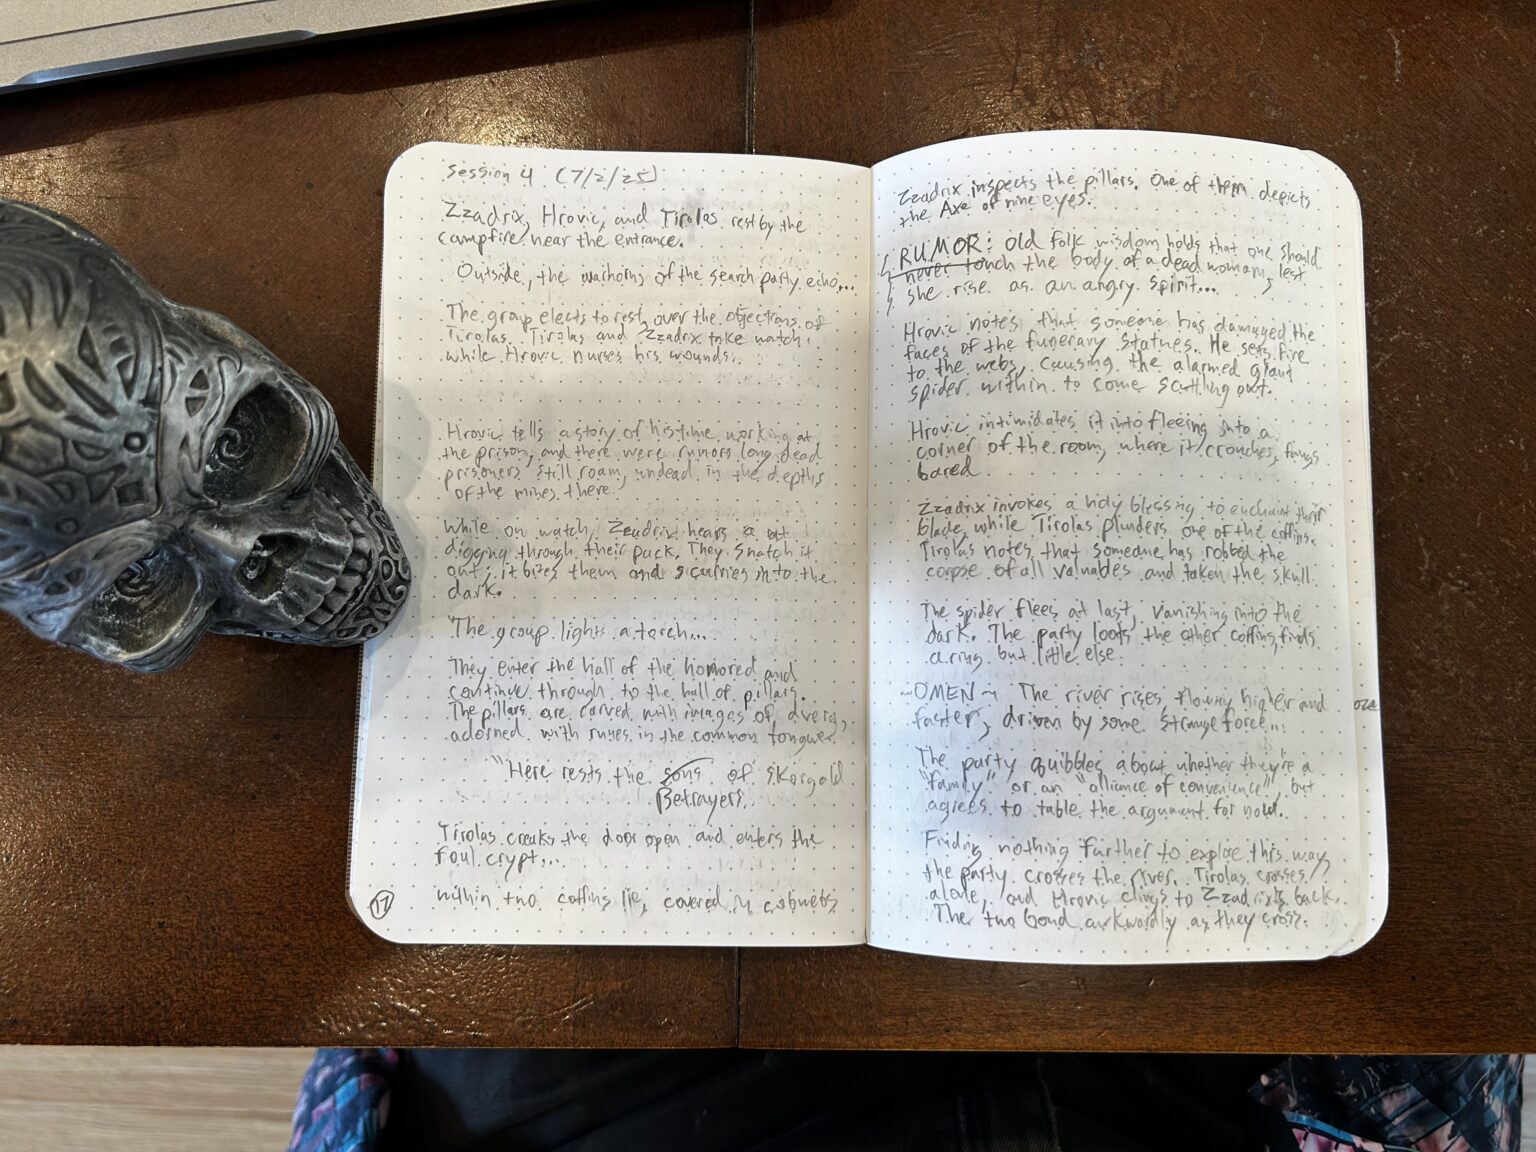 Session 4 (7/2/25)
Zzadrix, Hrovic, and Tirolas rest by the
campfire near the entrance.
Outside, the warhorns of the search party echo...
The group elects to rest over the objections of
Tirolas. Tirolas and Zzadrix take watch
while Hrovic nurses his wounds.
Hrovic tells a story of his time working at
the prison, and there were rumors long dead
prisoners still roam, undead in the depths
of the mines there.
While on watch, Zzadrix hears a rat
digging through their pack. They snatch it
out; it bites them and scurries into the
dark.
The group lights a torch...
They enter the hall of the honored and
continue through to the hall of pillars.
The pillars are carved with images of
adorned with runes in the common tongue.
"Here rests the sons of Skorgald
Betrayers
Tirolas creaks the door open and enters the
foul crypt...
Within two coffins lie, covered in cobwebs
17
Zzadrix inspects the pillars. One of them depicts
the Axe of nine eyes.
RUMOR: Old folk wisdom holds that one should
never touch the body of a dead woman, lest
she rise as an angry spirit...
Hrovic notes that someone has damaged the
faces of the funerary statues. He sets fire
to the webs, causing the alarmed giant
spider within to come scuttling out.
Hrovic intimidates it into fleeing into a
corner of the room, where it crouches, fangs
bared
Zzadrix invokes a holy blessing to enchant their
blade, while Tirolas plunders one of the coffins.
Tirolas notes that someone has robbed the
corpse of all valuables and taken the skull.
The spider flees at last, vanishing into the
dark. The party loots the other coffin, finds
a ring but little else.
~OMEN~ The river rises, flowing higher and
faster, driven by some strange force...
The party quibbles about whether they're a
"family" or an "alliance of convenience", but
agrees to table the argument for now.
Finding nothing further to explore this way,
the party crosses the river. Tirolas crosses
alone, and Hrovic clings to Zzadrix's back.
The two bond awkwardly as they cross.